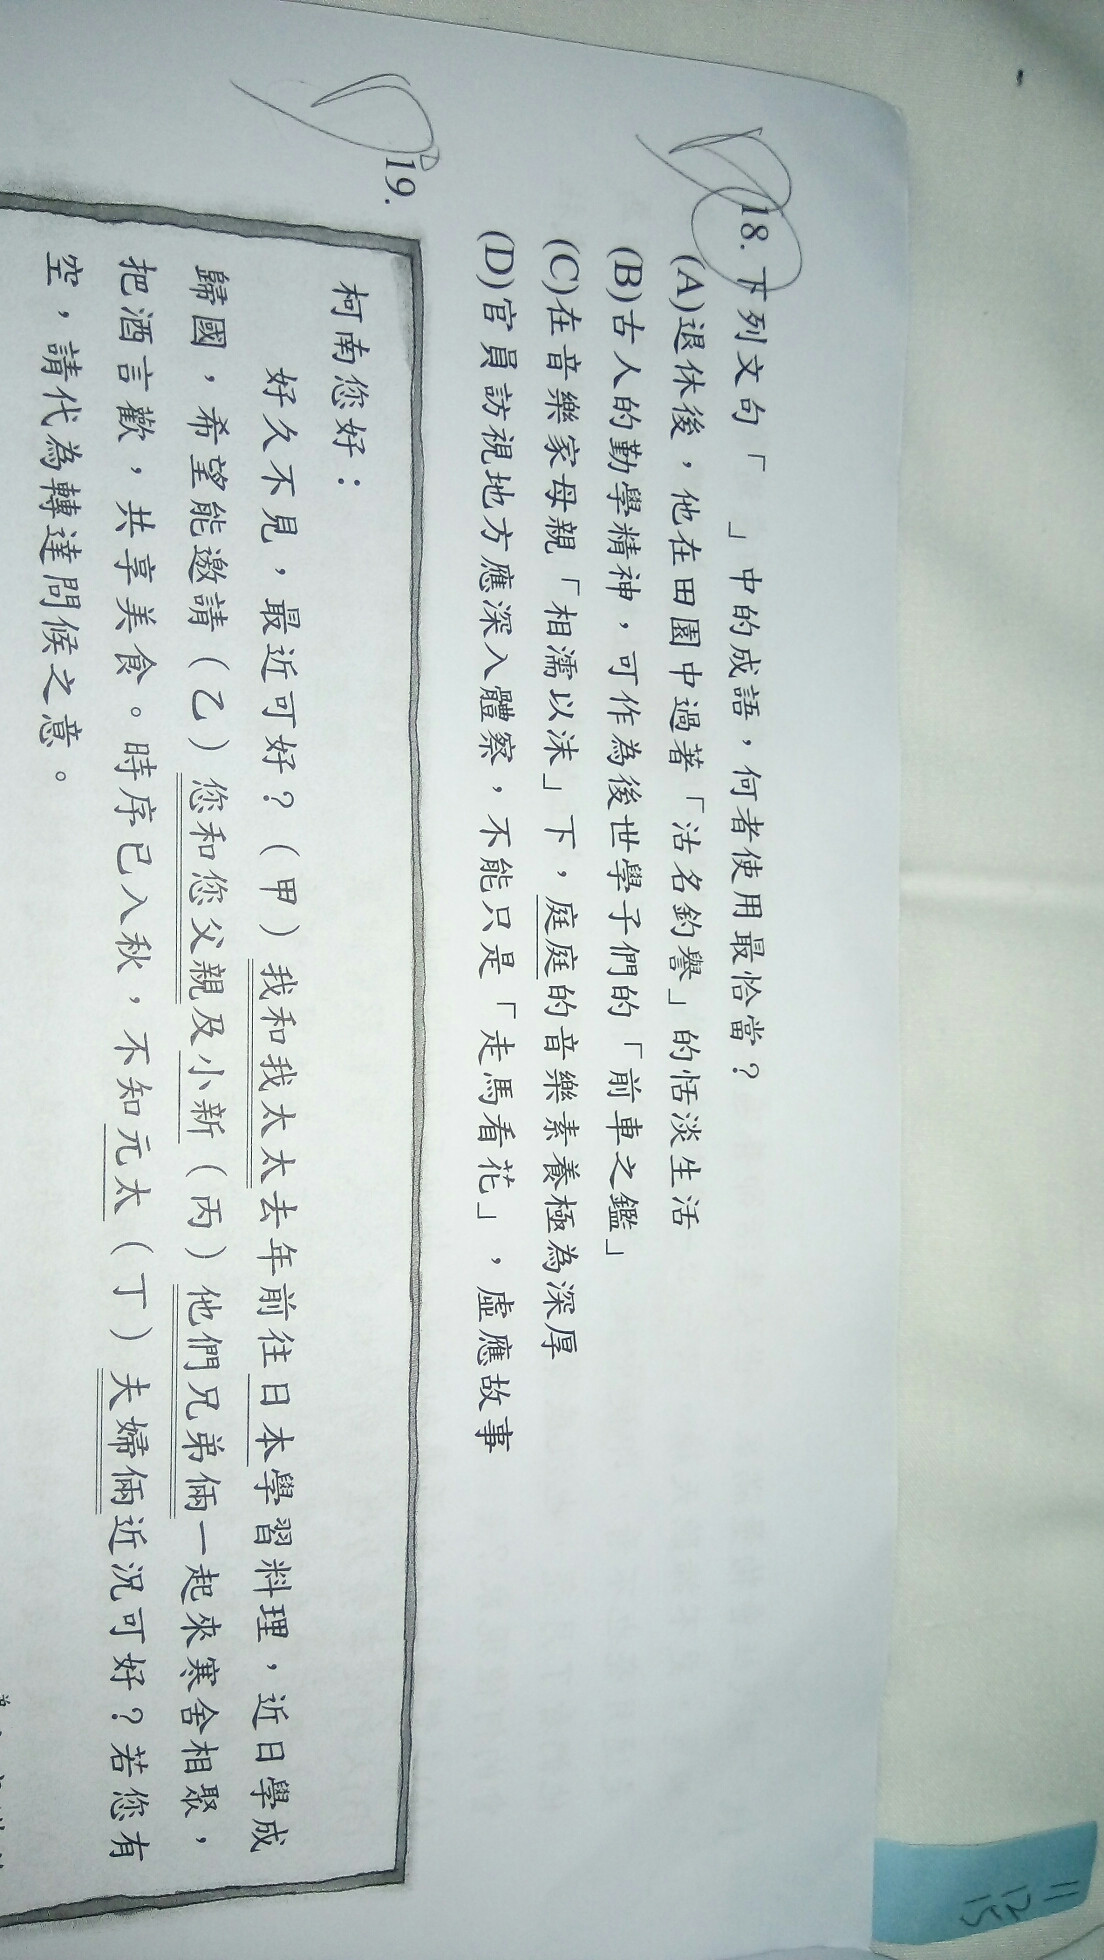 18. 下列文句「　」中的成語，何者使用最恰當？
(A)退休後，他在田園中過著「沽名釣譽」的恬淡生活
(B)古人的勤學精神，可作為後世學子們的「前車之鑑」
(C)在音樂家母親「相濡以沫」下，庭庭的音樂素養極為深厚
(D)官員訪視地方應深入體察，不能只是「走馬看花」，虛應故事
19.
柯南您好：
好久不見，最近可好？（甲）我和我太太去年前往日本學習料理，近日學成
歸國，希望能邀請（乙）您和您父親及小新（丙）他們兄弟倆一起來寒舍相聚，
把酒言歡，共享美食。時序已入秋，不知元太（丁）夫婦倆近況可好？若您有
空，請代為轉達問候之意。
11
12
15